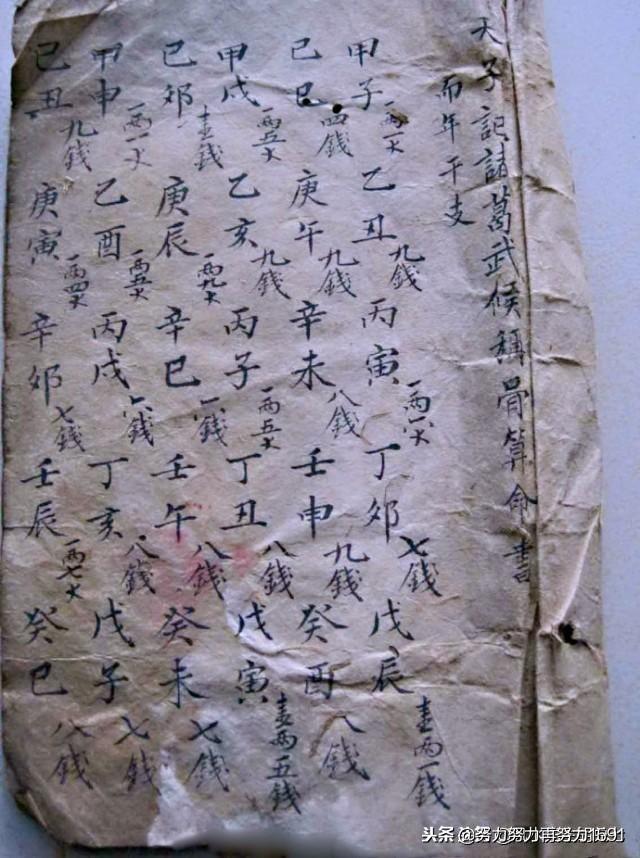 天子記諸葛武候稱骨算命書
而年干支
甲子 一兩一大 乙丑 九錢 丙寅 一兩 大 丁卯 七錢 戊辰 壹兩一錢
己巳 四錢 庚午 九錢 辛未 八錢 壬申 九錢 癸酉 八錢
甲戌 一兩五大 乙亥 九錢 丙子 一兩五大 丁丑 八錢 戊寅 壹兩五錢
己卯 壹錢 庚辰 一兩九大 辛巳 錢 壬午 八錢 癸未 七錢
甲申 一兩一大 乙酉 一兩五大 丙戌 六錢 丁亥 八錢 戊子 七錢
己丑 九錢 庚寅 一兩四大 辛卯 七錢 壬辰 一兩七大 癸巳 八錢
头条 @努力努力再努力